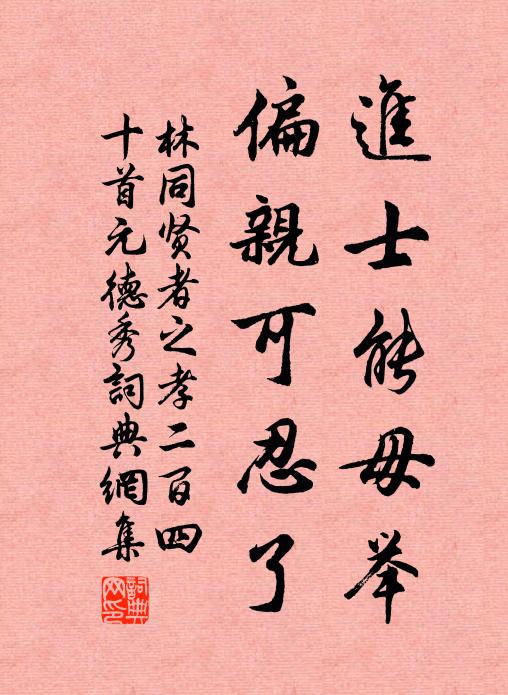 進士能毋举
偏親可忍了
林同贤者之孝二百四
十首元德秀詞典網集
詞典网印